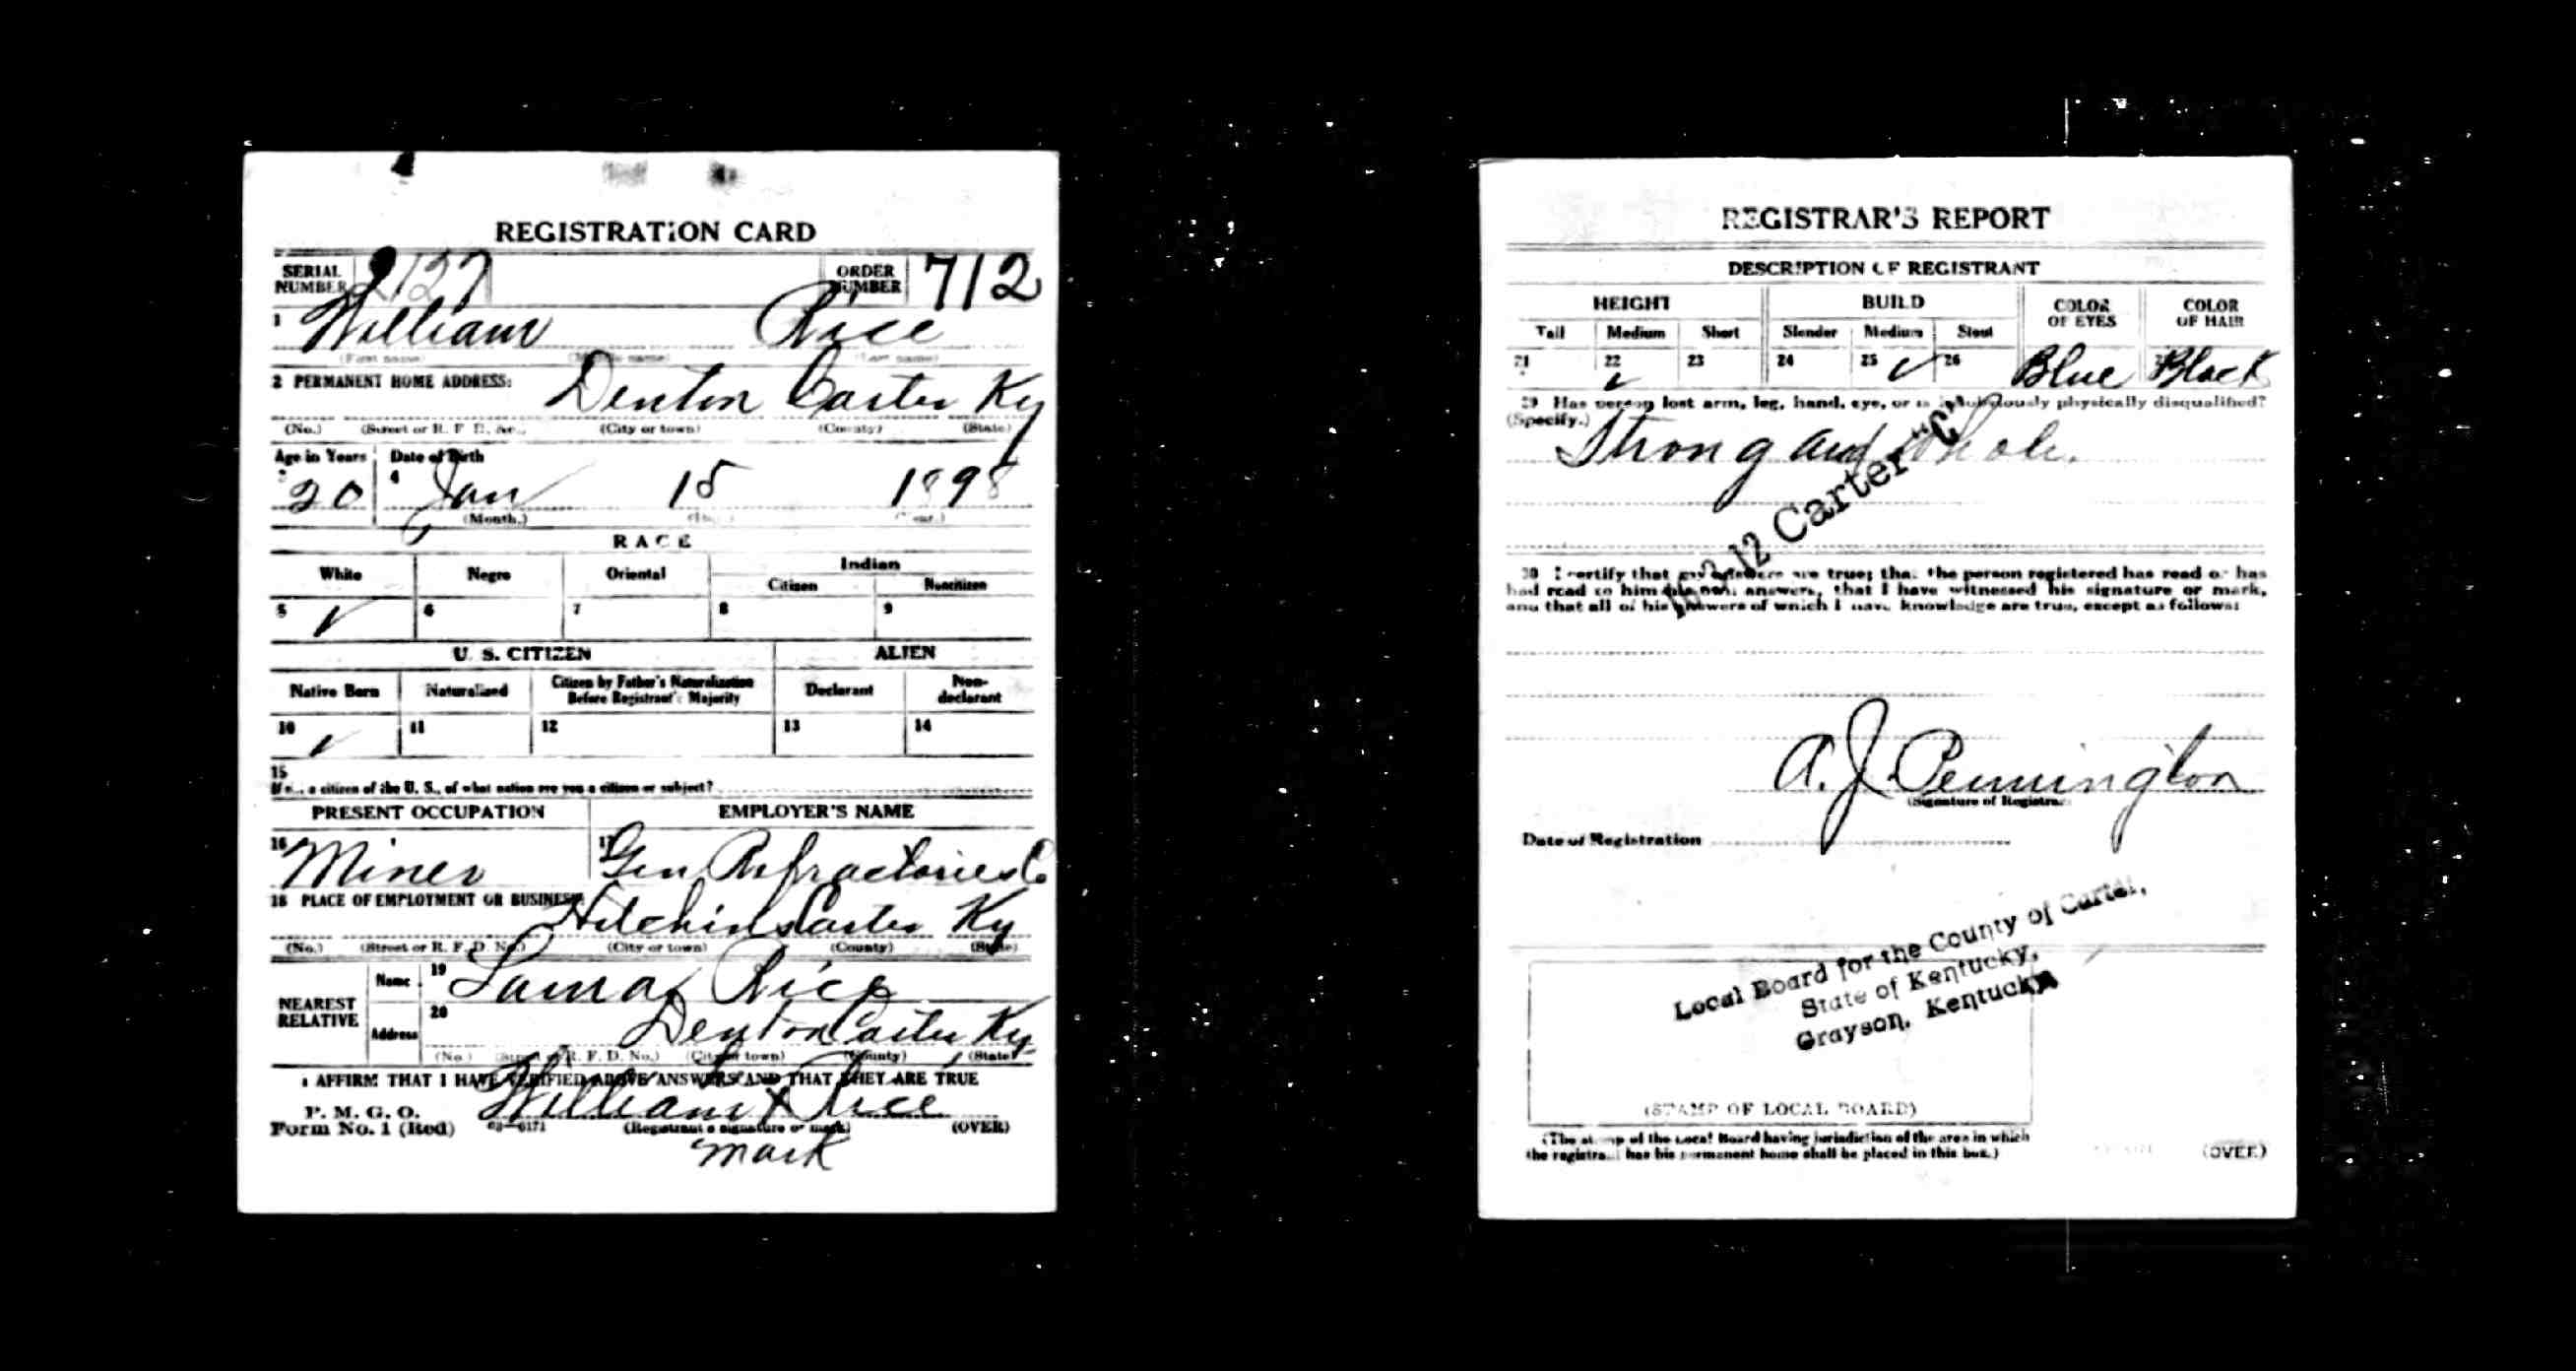 REGISTRATION CARD
SERIAL NUMBER 2127 ORDER NUMBER 712
1 William Rice
(First name) (Middle name) (Last name)
2 PERMANENT HOME ADDRESS: Denton Carter Ky
(No.) (Street or R. F. D. No.) (City or town) (County) (State)
Age in Years Date of Birth
3 20 4 Jan 15 1898
(Month.) (Day.) (Year.)
RACE
White Negro Oriental Indian
Citizen Noncitizen
5 ✓ 6 7 8 9
U. S. CITIZEN ALIEN
Native Born Naturalized Citizen by Father's Naturalization Before Registrant's Majority Declarant Non-declarant
10 ✓ 11 12 13 14
15
If not a citizen of the U. S., of what nation are you a citizen or subject?
PRESENT OCCUPATION EMPLOYER'S NAME
16 Miner 17 Gen Refractories Co
18 PLACE OF EMPLOYMENT OR BUSINESS: Hitchins Carter Ky
(No.) (Street or R. F. D. No.) (City or town) (County) (State)
NEAREST RELATIVE Name 19 Rice
Address 20 Denton Carter Ky
(No.) (Street or R. F. D. No.) (City or town) (County) (State)
I AFFIRM THAT I HAVE VERIFIED ABOVE ANSWERS AND THAT THEY ARE TRUE
P. M. G. O.
Form No. 1 (Red) William X Rice
(Registrant's signature or mark) (OVER)
mark
REGISTRAR'S REPORT
DESCRIPTION OF REGISTRANT
HEIGHT BUILD COLOR OF EYES COLOR OF HAIR
Tall Medium Short Slender Medium Stout
21 22 ✓ 23 24 25 ✓ 26 Blue Black
29 Has person lost arm, leg, hand, eye, or is he obviously physically disqualified?
(Specify.) Strong and Whole.
16-3-12 Carter "C"
30 I certify that my answers are true; that the person registered has read or has
had read to him his own answers, that I have witnessed his signature or mark,
and that all of his answers of which I have knowledge are true, except as follows:
A. J. Pennington
(Signature of Registrar)
Date of Registration
Local Board for the County of Carter,
State of Kentucky,
Grayson, Kentucky
(STAMP OF LOCAL BOARD)
(The stamp of the Local Board having jurisdiction of the area in which
the registrant has his permanent home shall be placed in this box.)
(OVER)